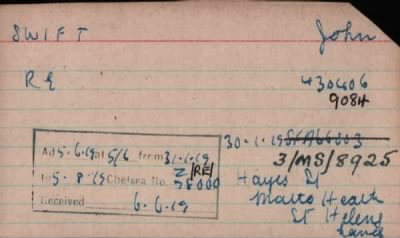 SWIFT John
RE 430406
9084
30.1.19 SFA66003
3/MS/8925
Ad 5.6.19 at 5/6 from 31.1.19
Z/RE/
To 5.8.19 Chelsea No. 78000
Received 6.6.19
Hayes St
Marto Heath
St Helens
Lancs